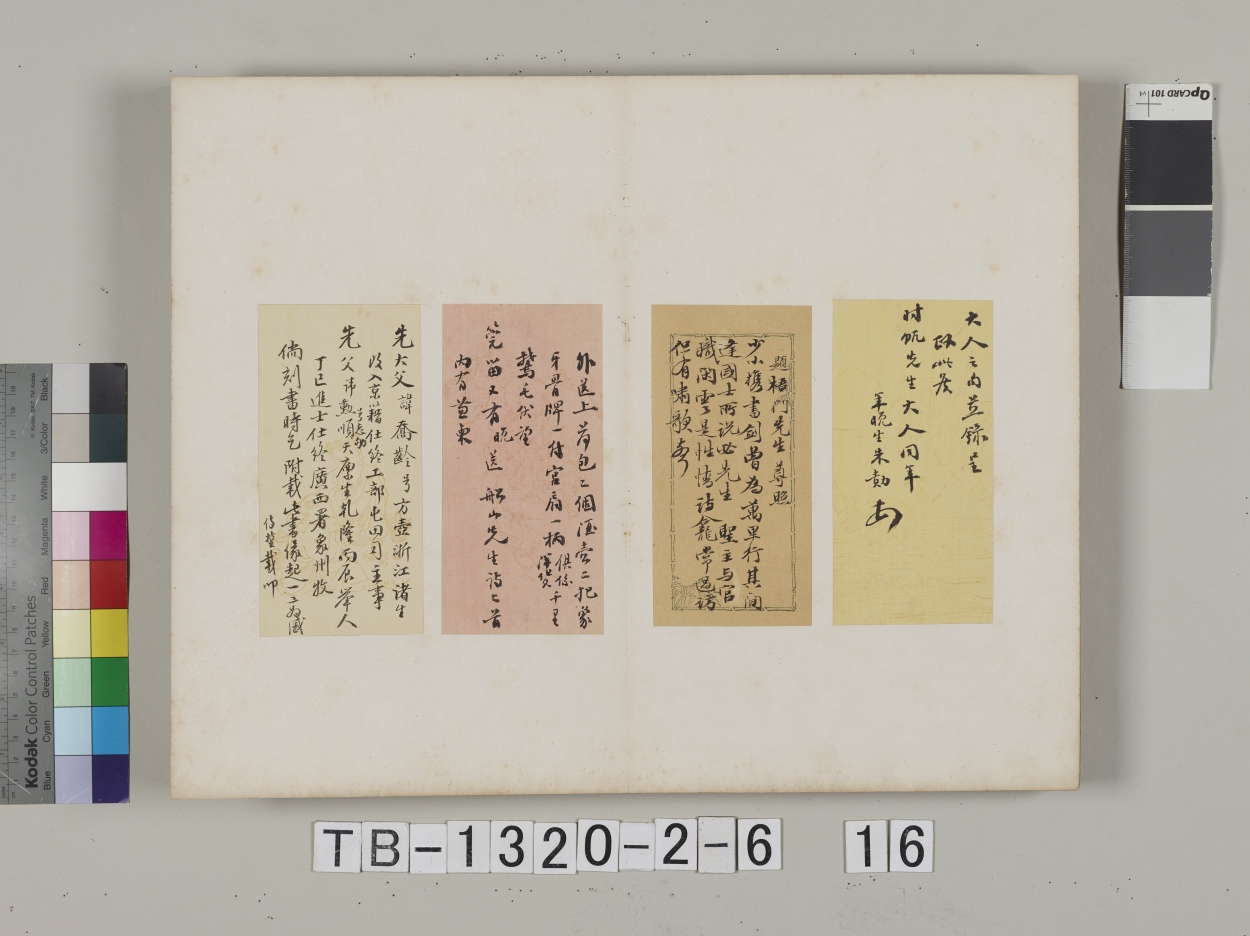 大人之內並錄呈
時帆先生大人同年
年晚生朱勳
題梧門先生尊照
少小攜書劍曾為萬里行其間
達國士所說必先生聖主与官
職閑雲是性情詩龕常過訪
但有嘯歌
外送上荷包二個酒壺二把
牙骨牌一付宮扇一柄
俱係千里
鵞毛伏望
筦留又有晚送船山先生詩七首
內有並東
先大父諱喬齡号方壺浙江諸生
改入京籍仕終工部屯田司主事
先父諱勳順天廩生乾隆丙辰舉人
丁巳進士仕終廣西署象州牧
倘刻書時乞附載此書緣起一二為感
載叩
TB-1320-2-6 16
QPCARD 101 v1
Kodak Color Control Patches
© Kodak
Blue
Cyan
Green
Yellow
Red
Magenta
White
3/Color
Black